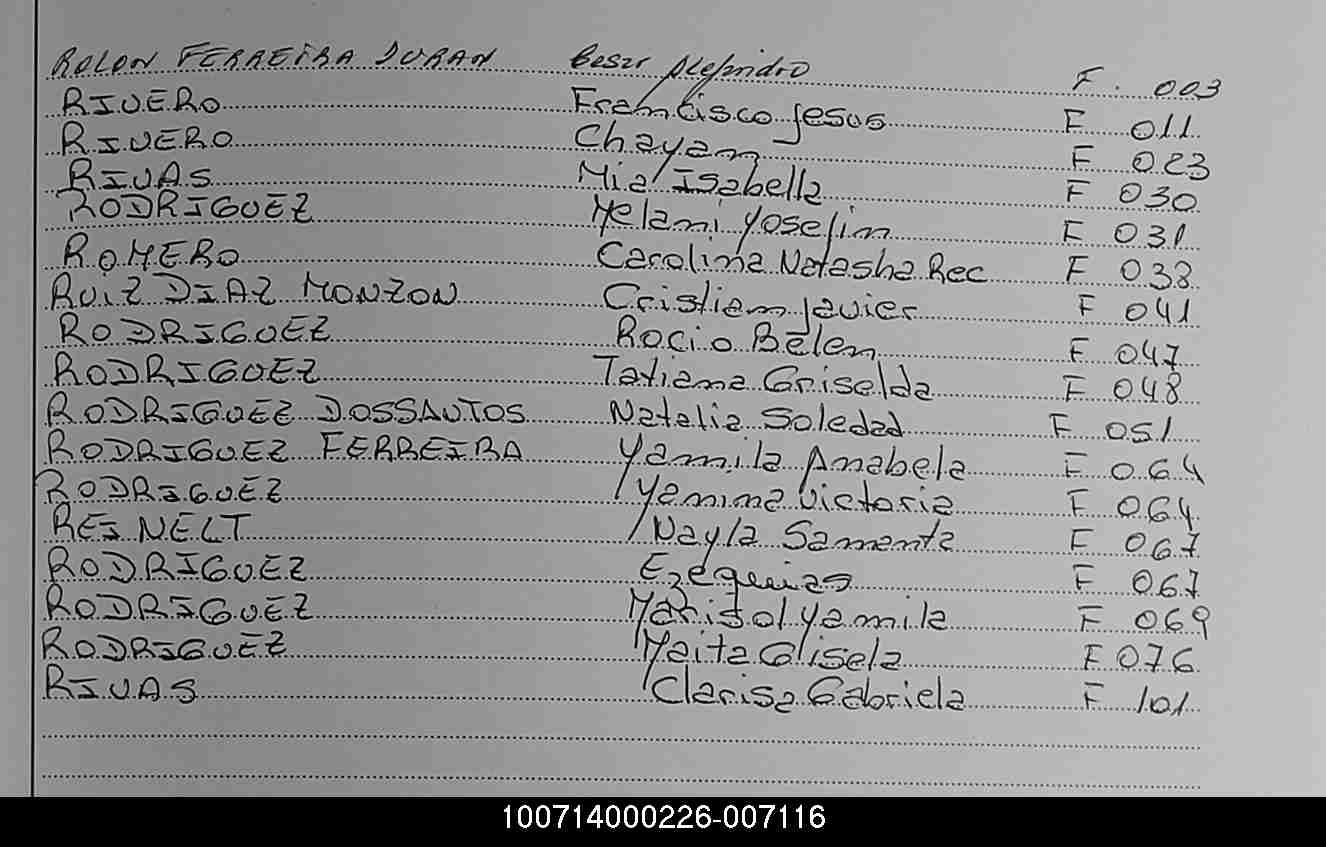 ROLON FERREIRA DURAN Cesar Alejandro F. 003
RIVERO Francisco Jesus F 011
RIVERO Chayam F 023
RIVAS Mia Isabella F 030
RODRIGUEZ Melami Yoselim F 031
ROMERO Carolina Natasha Rec F 038
RUIZ DIAZ MONZON Cristiam Javier F 041
RODRIGUEZ Rocio Belem F 047
RODRIGUEZ Tatiana Griselda F 048
RODRIGUEZ DOSSANTOS Natalia Soledad F 051
RODRIGUEZ FERREIRA Yamila Anabela F 064
RODRIGUEZ Yanina Victoria F 064
REINELT Nayla Samanta F 067
RODRIGUEZ Ezequias F 067
RODRIGUEZ Marisol Yamila F 069
RODRIGUEZ Maita Glisela F 076
RIVAS Clarisa Gabriela F 101
100714000226-007116